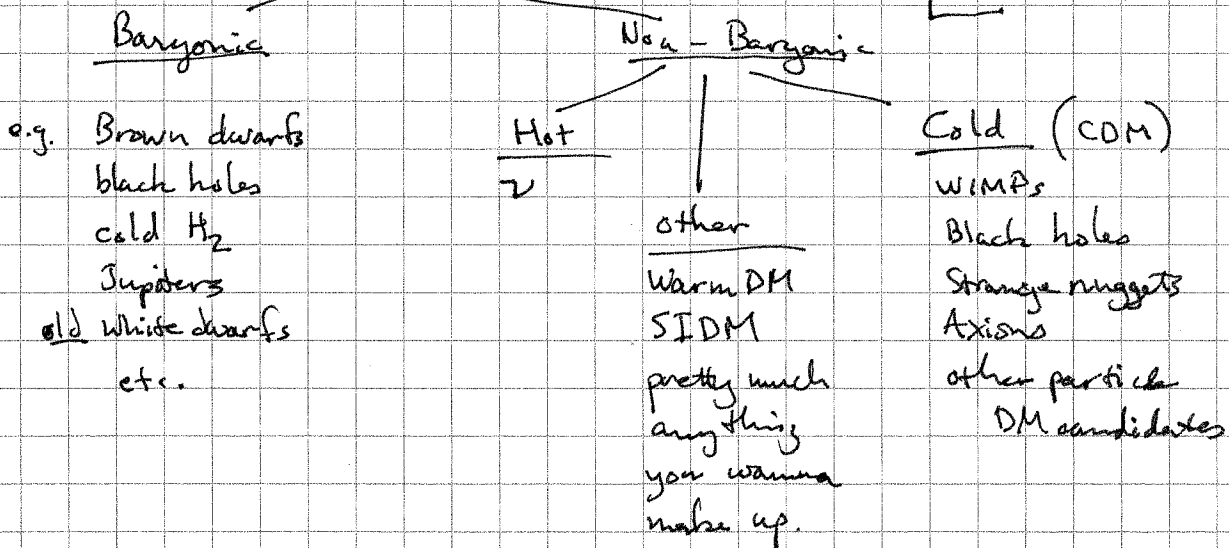 Baryonic
Non-Baryonic
e.g. Brown dwarfs
black holes
cold H₂
Jupiters
old white dwarfs
etc.
Hot
ν
other
Warm DM
SIDM
pretty much
anything
you wanna
make up.
Cold (CDM)
WIMPs
Black holes
Strange nuggets
Axions
other particle
DM candidates